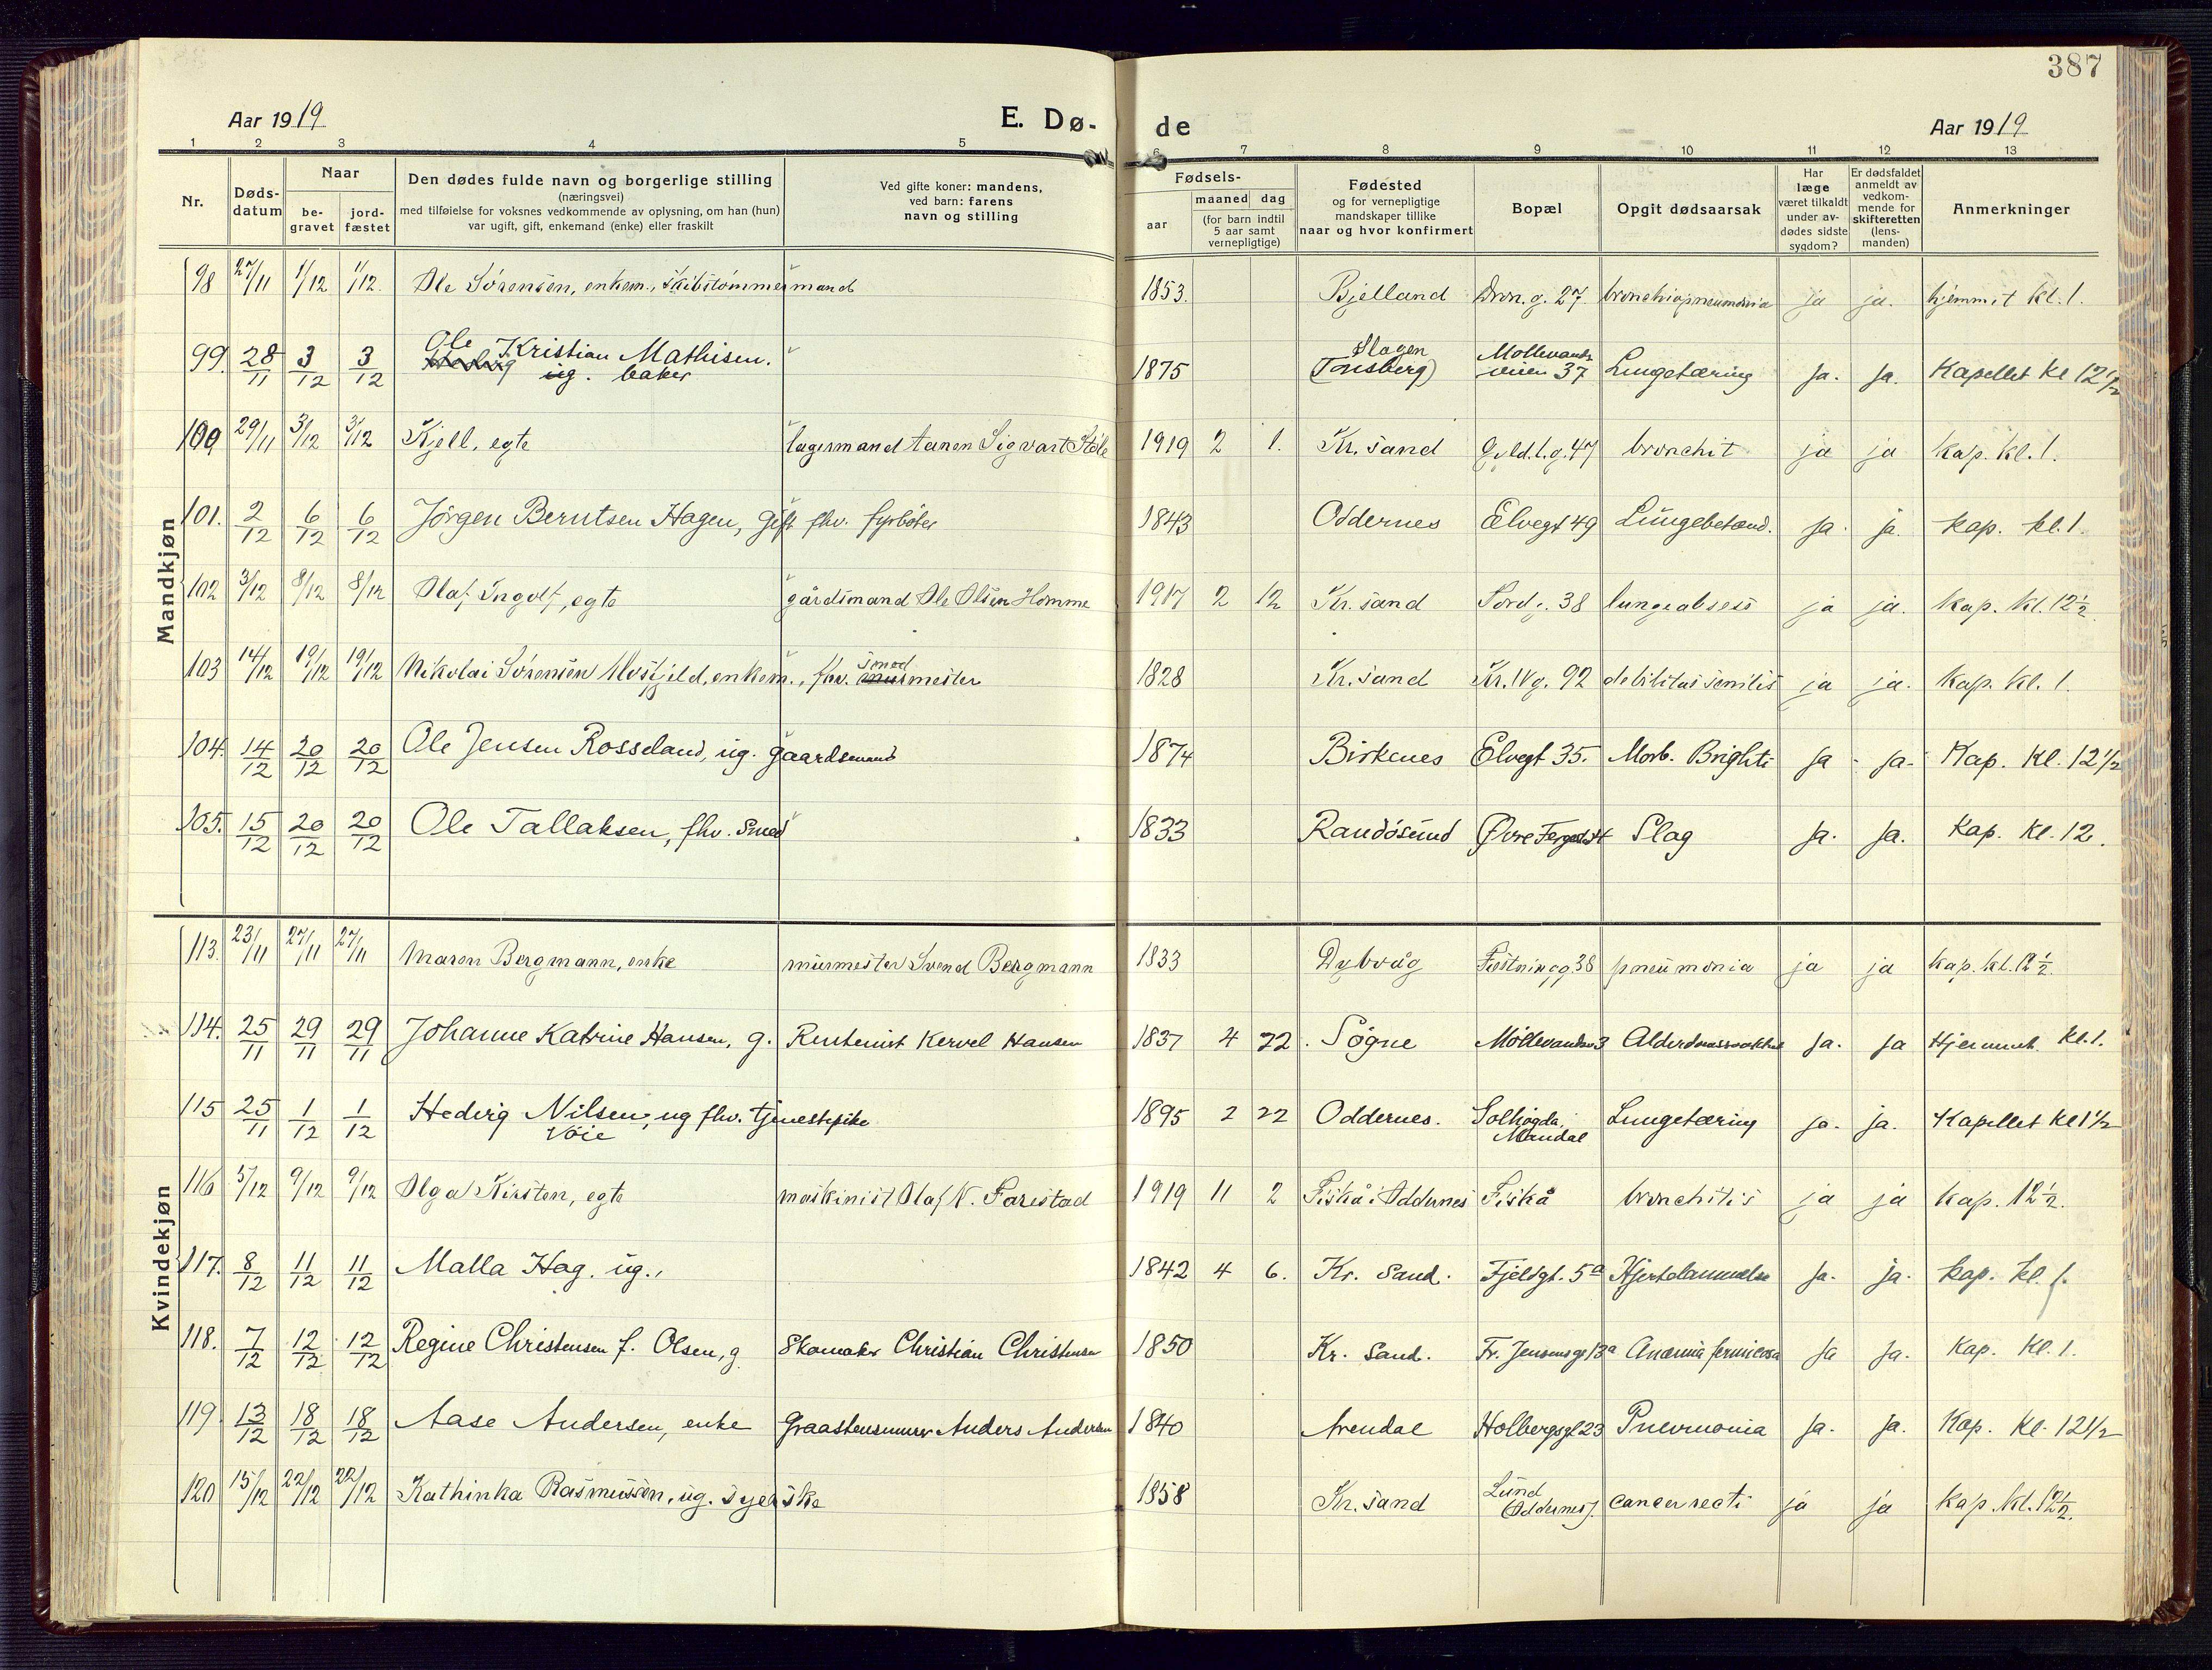 387
Aar 1919 E. Dø- de Aar 1919
1 2 3 4 5 6 7 8 9 10 11 12 13
Nr.
Døds-
datum
Naar
be-
gravet
jord-
fæstet
Den dødes fulde navn og borgerlige stilling
(næringsvei)
med tilføielse for voksnes vedkommende av oplysning, om han (hun)
var ugift, gift, enkemand (enke) eller fraskilt
Ved gifte koner: mandens,
ved barn: farens
navn og stilling
Fødsels-
aar
maaned dag
(for barn indtil
5 aar samt
vernepligtige)
Fødested
og for vernepligtige
mandskaper tillike
naar og hvor konfirmert
Bopæl
Opgit dødsaarsak
Har
læge
været tilkaldt
under av-
dødes sidste
sygdom?
Er dødsfaldet
anmeldt av
vedkom-
mende for
skifteretten
(lens-
manden)
Anmerkninger
Mandkjøn
98 27/11 1/12 1/12. Ole Sørensen, enkem., skibstømmermand 1853. Bjelland Dron.g. 27. bronchiopneumonia ja ja. hjemmet kl. 1.
99. 28/11 3/12 3/12 Ole Kristian Mathisen. ug. baker 1875 Slagen (Tønsberg) Møllevands veien 37 Lungetæring ja. ja. Kapellet Kl 12 1/2
100 29/11 3/12 3/12 Kjell, egte lagermand Aanen Sigvart Støle 1919 2 1. Kr.sand Gyld.l.g. 47 bronchit ja ja kap. kl. 1.
101. 2/12 6/12 6/12 Jörgen Berntsen Hagen, gift fhv. fyrbøter 1843 Oddernes Elvegt 49 Lungebetænd. ja. ja. kap. kl. 1.
102 3/12 8/12 8/12 Olaf Ingolf, egte gårdsmand Ole Olsen Homme 1917 2 12 Kr.sand Tord.g. 38 lungeabsess ja ja. kap. kl. 12 1/2.
103 14/12 19/12 19/12 Nikolai Sørensen Mosfjeld, enkem., fhv. smedmester 1828 Kr.sand Kr.IVg. 92 debilitas senilis ja ja. kap. kl. 1.
104. 14/12 20/12 20/12 Ole Jensen Rosseland, ug. gaardsmand 1874 Birkenes Elvegt 35. Morb. Brighti ja ja. Kap. Kl. 12 1/2
105. 15/12 20/12 20/12 Ole Tallaksen, fhv. Smed 1833 Randösund Øvre Slag ja. ja. Kap. Kl. 12.
Kvindekjøn
113. 23/11 27/11 27/11 Maren Bergmann, enke murmester Svend Bergmann 1833 Dybvåg Festningg. 38 pneumonia ja ja kap. kl. 12 1/2.
114. 25/11 29/11 29/11 Johanne Katrine Hansen, g. Rentenist Kervel Hansen 1837 4 22. Søgne Møllevandsv 3 Alderdomssvakhet ja. ja Hjemmet. Kl. 1.
115 25/11 1/12 1/12 Hedvig Nilsen, ug fhv. tjenestepike
Voie 1895 2 22 Oddernes. Solhøgda, Mandal Lungetæring ja. ja. Kapellet Kl 1 1/2
116 5/12 9/12 9/12 Olga Kirsten, egte maskinist Olaf N. Farestad 1919 11 2 Fiskå i Oddernes Fiskå bronchitis ja ja kap. 12 1/2.
117. 8/12 11/12 11/12 Malla Hag. ug., 1842 4 6. Kr. Sand. Fjeldgt. 5a Hjertelammelse ja. ja. kap. kl. 1.
118. 7/12 12/12 12/12 Regine Christensen f. Olsen, g. Skomaker Christian Christensen 1850 Kr. Sand. Fr. Jensensgt 13a Anæmia perniciosa ja ja. Kap. Kl. 1.
119 13/12 18/12 18/12 Aase Andersen, enke Graastensmurer Anders Andersen 1840 Arendal Holbergsgt 23 Pneumonia ja. ja. Kap. Kl. 12 1/2
120 15/12 22/12 22/12 Kathinka Rasmussen, ug. syerske 1858 Kr.sand Lund (Oddernes). cancer recti ja ja kap. kl. 12 1/2.